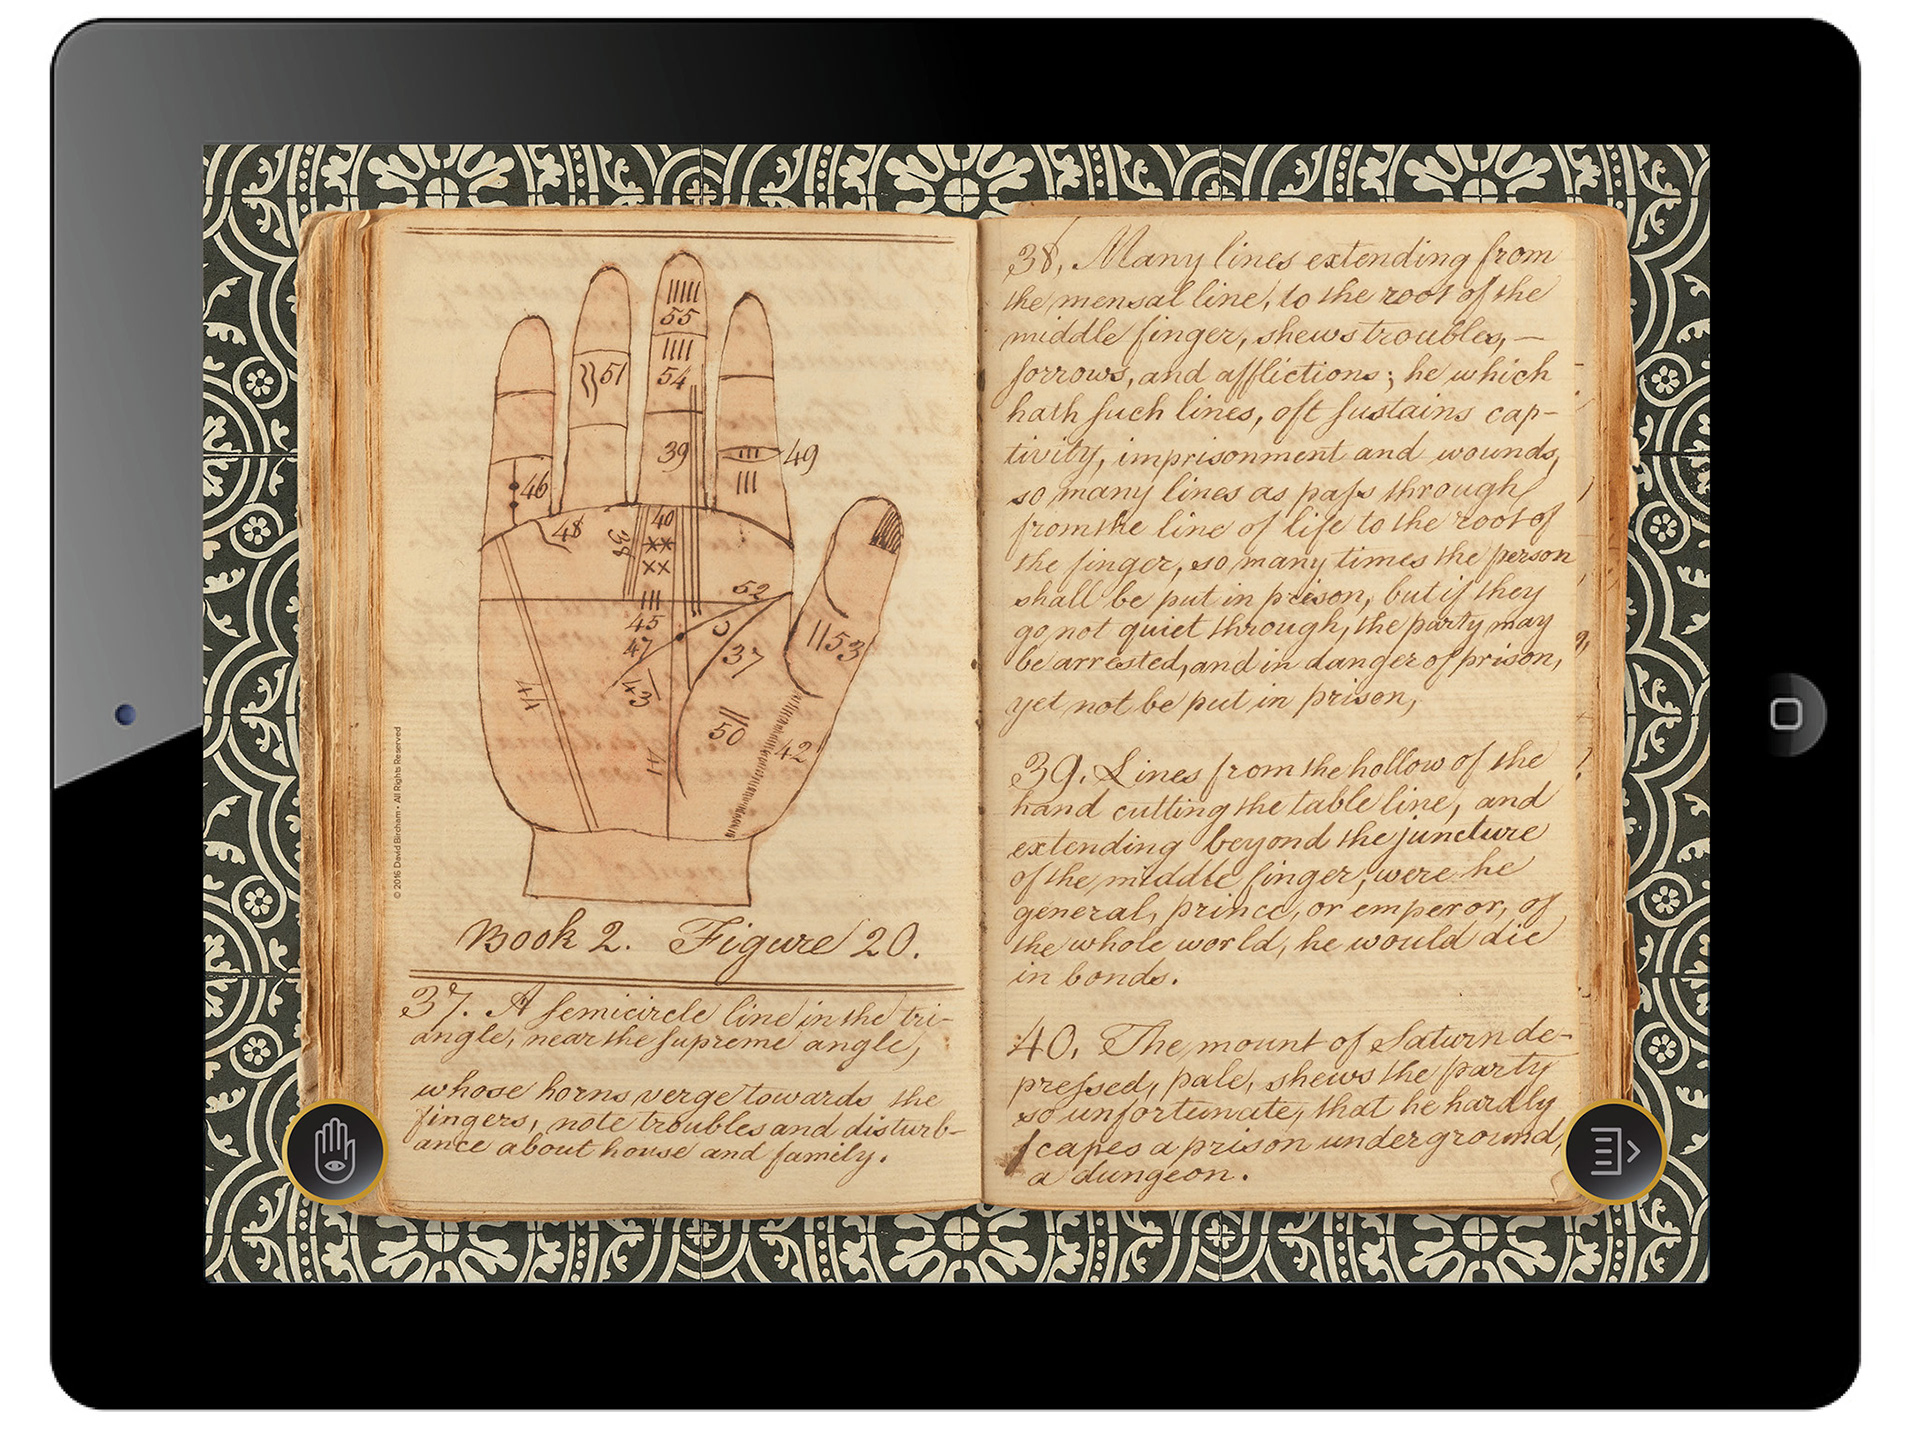 55
54
51
39
49
46
48
38
40
52
45
47
37
53
43
44
50
42
41
© 2016 David Bircham • All Rights Reserved
Book 2. Figure 20.
37. A semicircle line in the tri-
angle, near the supreme angle,
whose horns verge towards the
fingers, note troubles and disturb-
ance about house and family.
38, Many lines extending from
the mensal line, to the root of the
middle finger, shews troubles, —
sorrows, and afflictions; he which
hath such lines, oft sustains cap-
tivity, imprisonment and wounds,
so many lines as pass through
from the line of life to the root of
the finger, so many times the person
shall be put in prison, but if they
go not quiet through, the party may
be arrested, and in danger of prison,
yet not be put in prison,
39. Lines from the hollow of the
hand cutting the table line, and
extending beyond the juncture
of the middle finger, were he
general, prince, or emperor, of
the whole world, he would die
in bonds.
40, The mount of Saturn de-
pressed, pale, shews the party
so unfortunate, that he hardly
scapes a prison underground,
a dungeon.